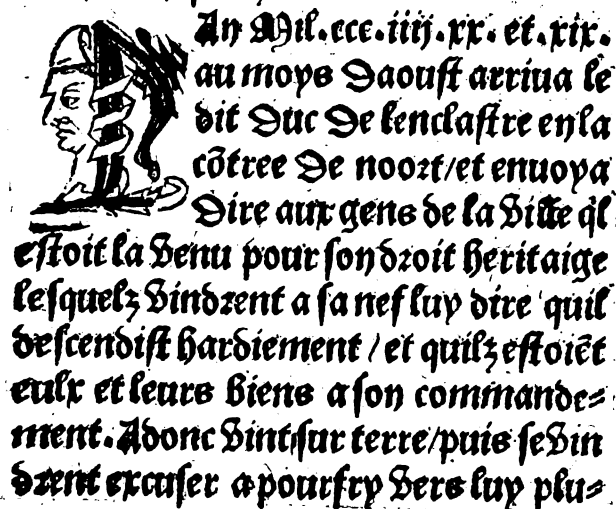 LAn Mil.ccc.iiij.xx. et.xix.
au moys Daoust arriua le
dit Duc De lenclastre en la
cõtree De noort/et enuoya
Dire aux gens de la Ville q̃l
estoit la Venu pour son droit heritaige
lesquelz Vindrent a sa nef luy dire quil
descendist hardiement / et quilz estoiẽt
eulx et leurs biens a son commande⸗
ment. Adonc Vint sur terre/puis se Vin
drent excuser a pourfry Vers luy plu⸗